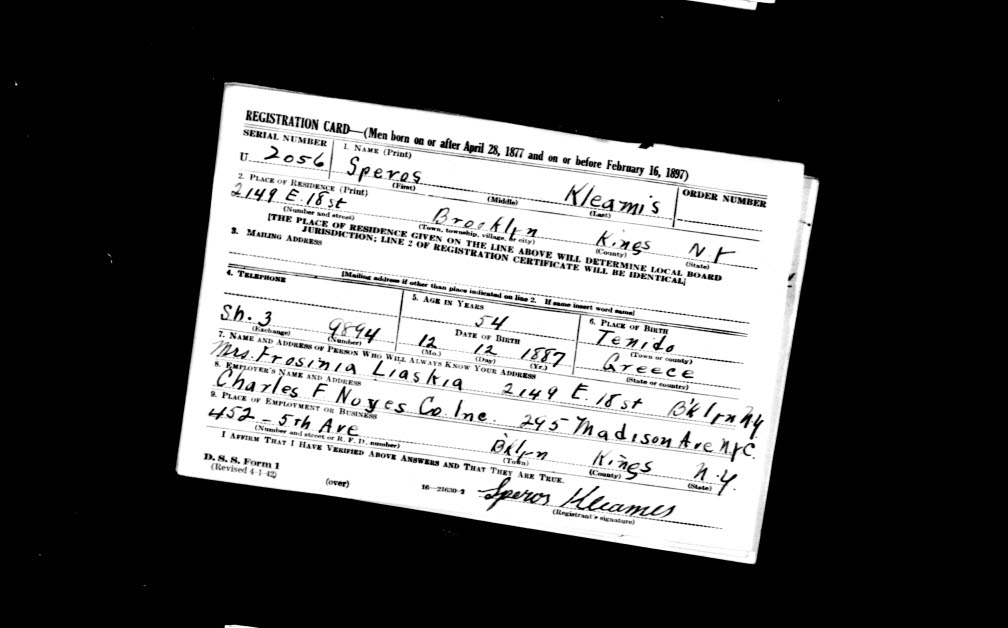 REGISTRATION CARD—(Men born on or after April 28, 1877 and on or before February 16, 1897)
SERIAL NUMBER
1. NAME (Print)
ORDER NUMBER
U 2056
Speros Kleamis
(First) (Middle) (Last)
2. PLACE OF RESIDENCE (Print)
2149 E. 18 st Brooklyn Kings N.Y
(Number and street) (Town, township, village, or city) (County) (State)
[THE PLACE OF RESIDENCE GIVEN ON THE LINE ABOVE WILL DETERMINE LOCAL BOARD
JURISDICTION; LINE 2 OF REGISTRATION CERTIFICATE WILL BE IDENTICAL]
3. MAILING ADDRESS
[Mailing address if other than place indicated on line 2. If same insert word same]
4. TELEPHONE
5. AGE IN YEARS
6. PLACE OF BIRTH
54
Tenido
DATE OF BIRTH
(Town or county)
Sh. 3 9894
12 12 1887
Greece
(Exchange) (Number)
(Mo.) (Day) (Yr.)
(State or country)
7. NAME AND ADDRESS OF PERSON WHO WILL ALWAYS KNOW YOUR ADDRESS
Mrs. Frosinia Liaskia 2149 E. 18 st B'klyn NY
8. EMPLOYER'S NAME AND ADDRESS
Charles F Noyes Co. Inc. 295 Madison Ave NYC.
9. PLACE OF EMPLOYMENT OR BUSINESS
452 - 5th Ave B'klyn Kings N.Y.
(Number and street or R. F. D. number) (Town) (County) (State)
I AFFIRM THAT I HAVE VERIFIED ABOVE ANSWERS AND THAT THEY ARE TRUE.
D. S. S. Form 1
(Revised 4-1-42)
(over)
16—21630-2
Speros Kleames
(Registrant's signature)